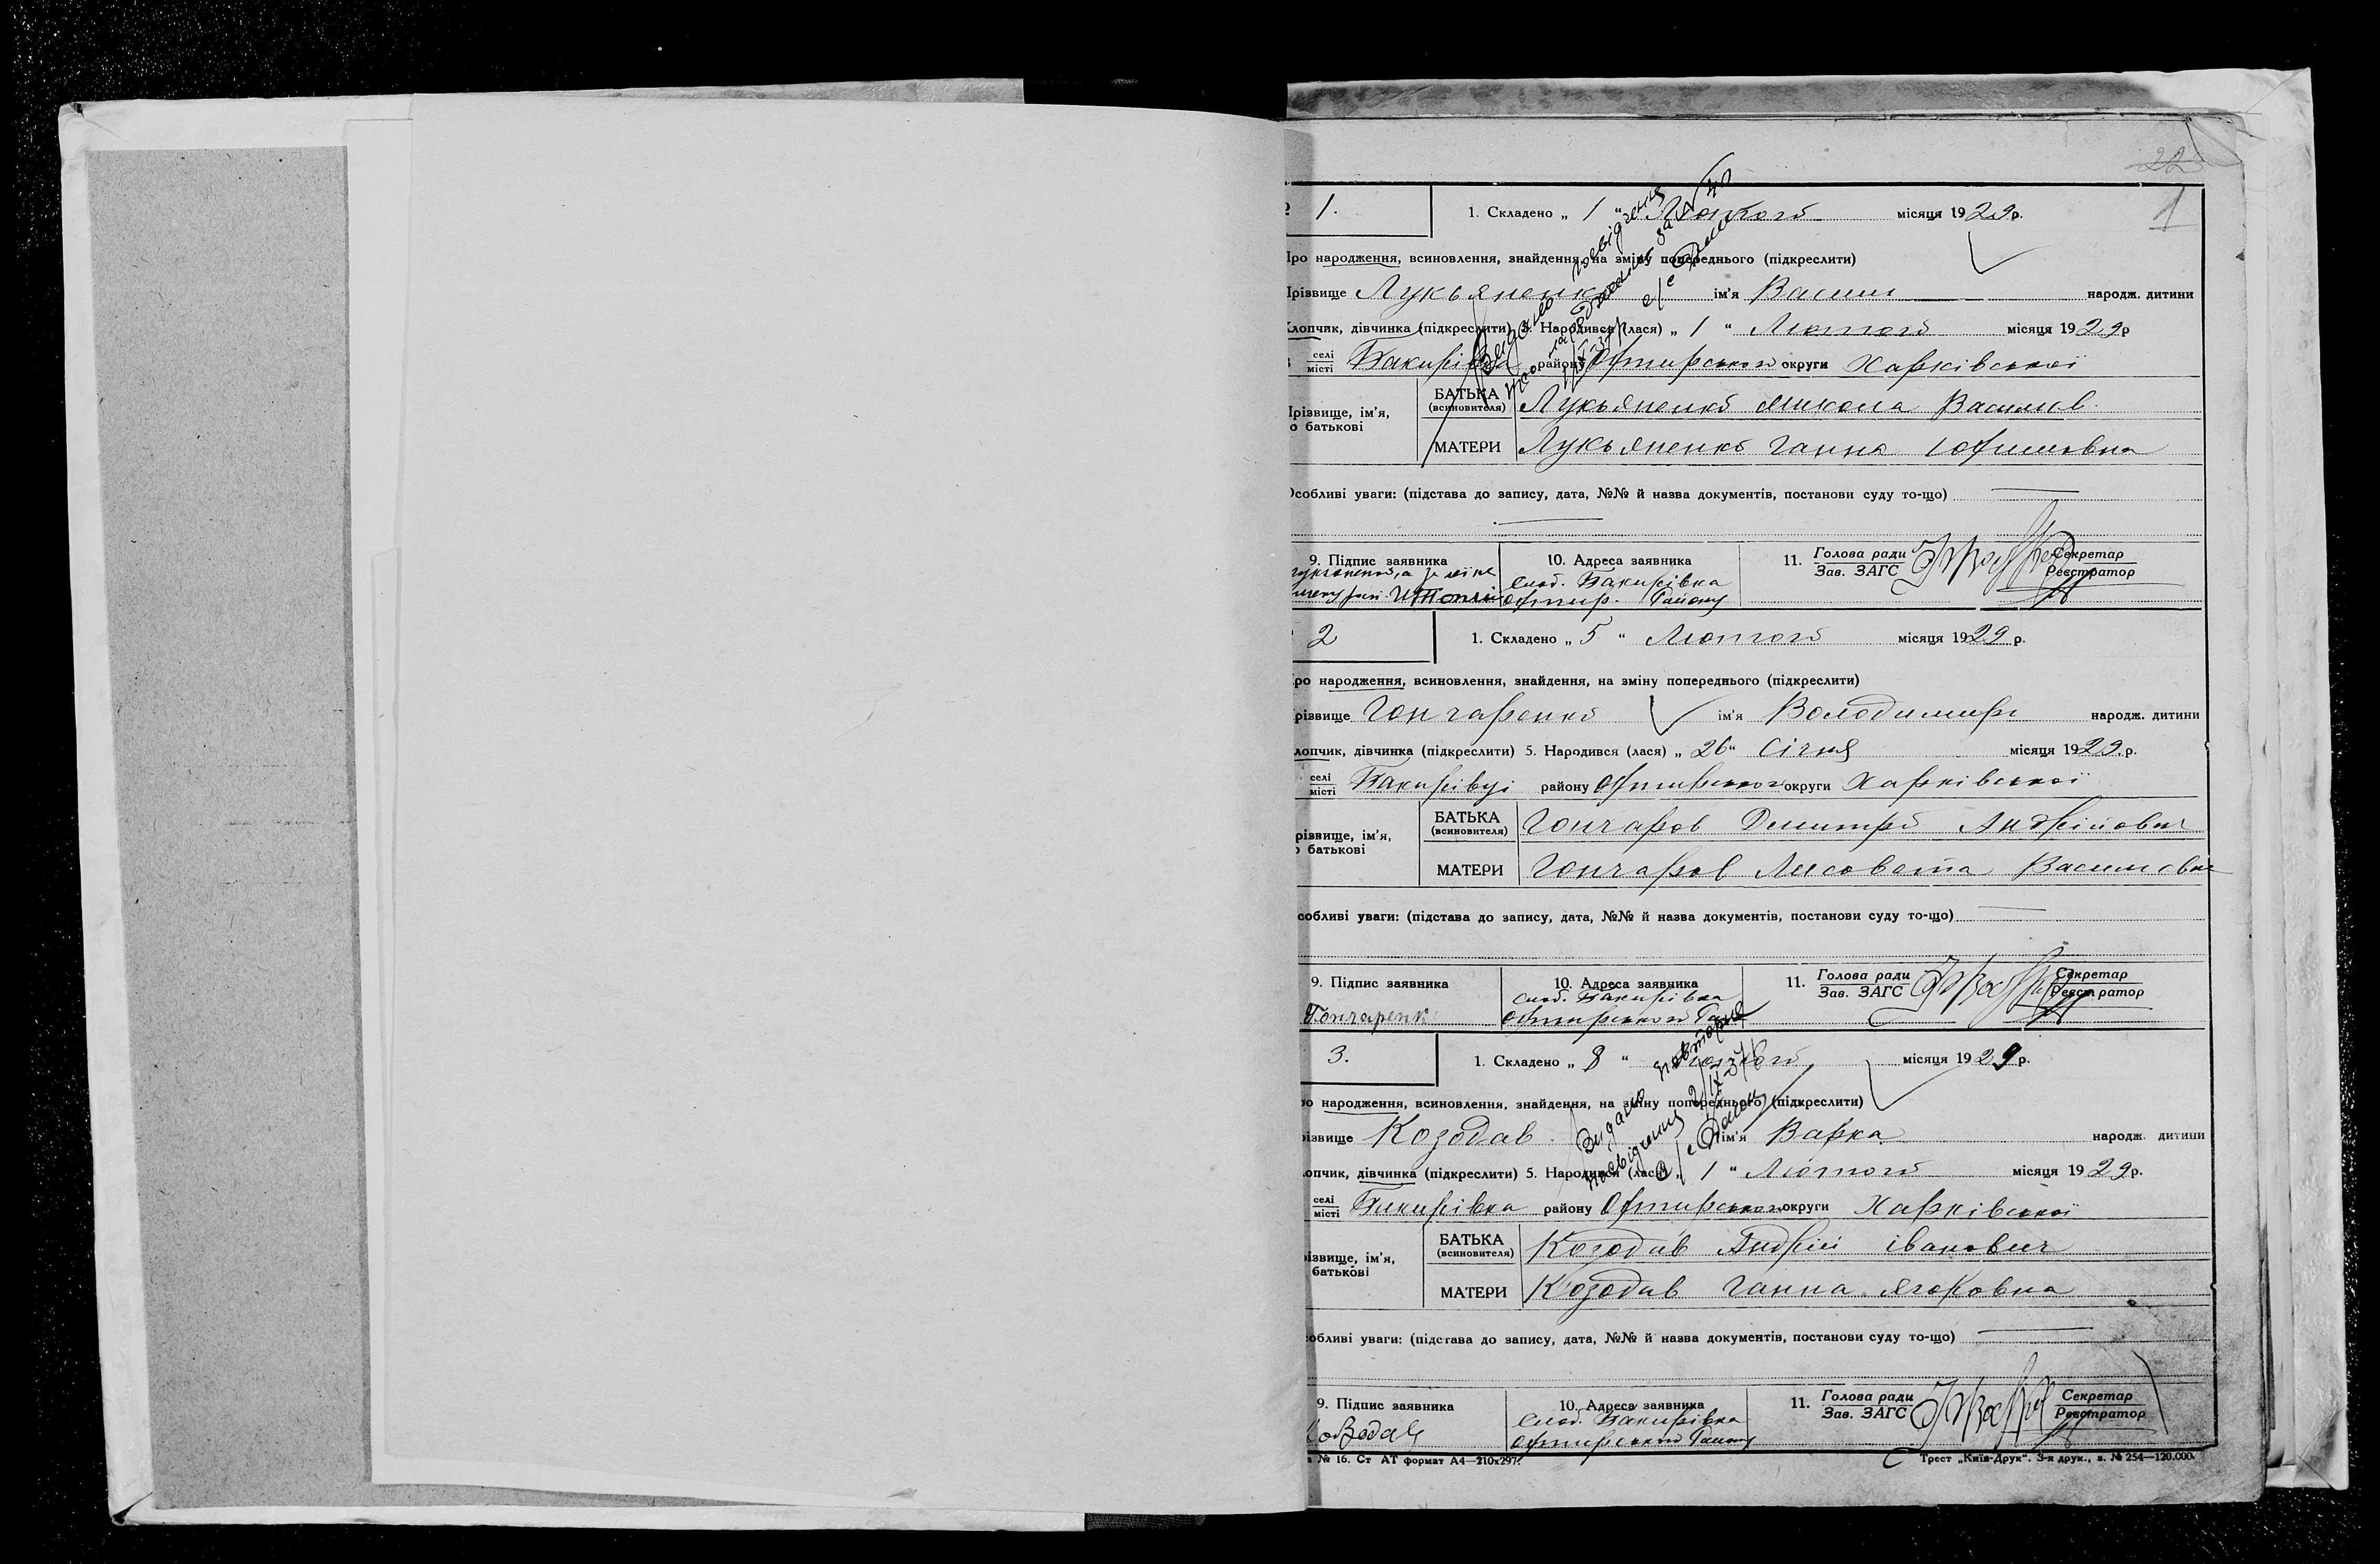 22
1
1.
1. Складено „ 1 “ Лютого місяця 1929р.
Про народження, всиновлення, знайдення, на зміну попереднього (підкреслити)
Прізвище Лукьяненко ім'я Васил народж. дитини
Хлопчик, дівчинка (підкреслити) 5. Народився (лася) „ 1 “ Лютого місяця 1929р
селі
місті Бакирівка району Охтирського округи Харківської
БАТЬКА
(всиновителя) Лукьяненко Микола Васильов
Прізвище, ім'я,
по батькові
МАТЕРИ Лукьяненко Ганна Юфимовна
Особливі уваги: (підстава до запису, дата, №№ й назва документів, постанови суду то-що)
9. Підпис заявника 10. Адреса заявника 11. Голова ради Секретар
Зав. ЗАГС Реєстратор
слоб. Бакирівка
Охтир. Району
2
1. Складено „ 5 “ Лютого місяця 1929 р.
ро народження, всиновлення, знайдення, на зміну попереднього (підкреслити)
різвище Гончаренко ім'я Володимир народж. дитини
лопчик, дівчинка (підкреслити) 5. Народився (лася) „ 26 “ Січня місяця 1929.р.
селі
місті Бакирівці району Охтирського округи Харківської
БАТЬКА
(всиновителя) Гончаров Дмитро Андрійович
різвище, ім'я,
о батькові
МАТЕРИ Гончаров Лисовета Василовна
собливі уваги: (підстава до запису, дата, №№ й назва документів, постанови суду то-що)
9. Підпис заявника 10. Адреса заявника 11. Голова ради Секретар
Зав. ЗАГС Реєстратор
слоб. Бакирівка
Гончаренк Охтирського Рай
3.
1. Складено „ 8 “ Лютого місяця 1929 р.
ро народження, всиновлення, знайдення, на зміну попереднього (підкреслити)
різвище Козодав ім'я Варка народж. дитини
опчик, дівчинка (підкреслити) 5. Народився (лася) „ 1 “ Лютого місяця 1929р.
селі
місті Бакирівка району Охтирського округи Харківської
БАТЬКА
(всиновителя) Козодав Андрій Іванович
різвище, ім'я,
батькові
МАТЕРИ Козодав Ганна Ягововна
Видано повторне
посвідчення 2/IX-37 р
собливі уваги: (підстава до запису, дата, №№ й назва документів, постанови суду то-що)
9. Підпис заявника 10. Адреса заявника 11. Голова ради Секретар
Зав. ЗАГС Реєстратор
слоб. Бакирівка
Козодав Охтирського Району
№ 16. Ст АТ формат А4—210х297. Трест „Київ-Друк“. 3-я друк., з. № 254—120.000.